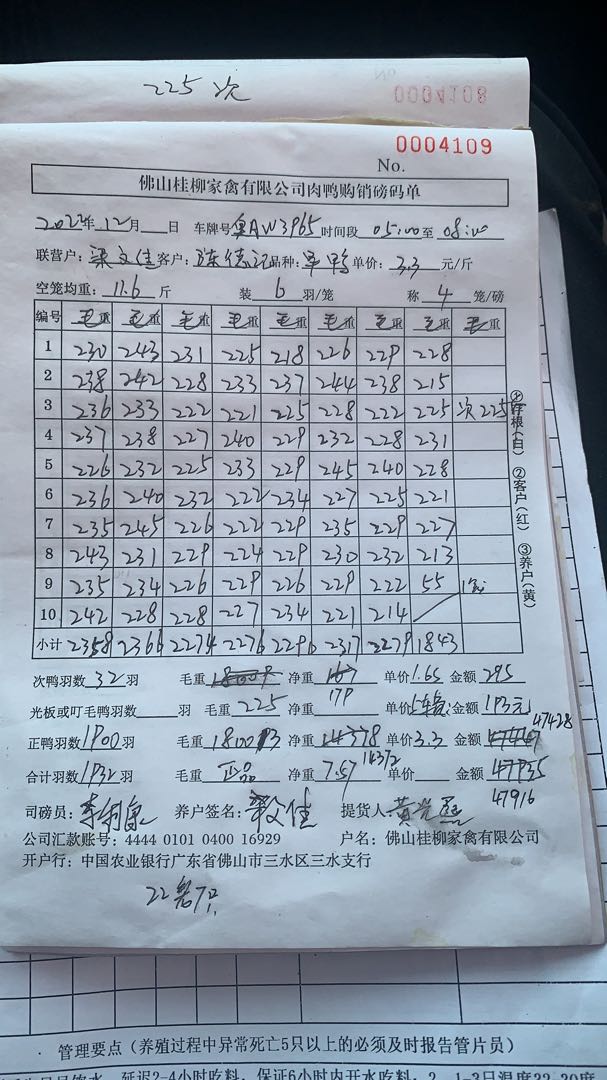 225 次
No.
0004108
0004109
No.
佛山桂柳家禽有限公司肉鸭购销磅码单
2022年12月 日 车牌号 AW3965 时间段 05:00 至 08:00
联营户: 梁文佳 客户: 陈德记 品种: 单价: 3.3 元/斤
空笼均重: 11.6 斤 装 6 羽/笼 称 4 笼/磅
编号 毛重 毛重 毛重 毛重 毛重 毛重 毛重 毛重 毛重
1 230 243 231 225 218 226 229 228
2 238 242 228 233 237 244 238 215
3 236 233 222 221 225 228 222 225 次225
4 237 238 227 240 229 232 228 231
5 226 232 225 233 229 245 240 228
6 236 240 232 222 234 227 225 221
7 235 245 226 222 229 235 229 227
8 243 231 229 224 229 230 232 213
9 235 234 226 229 226 229 222 55
10 242 228 228 227 234 221 214
小计 2358 2366 2274 2276 2290 2317 2279 1843
次鸭羽数 32 羽 毛重 净重 单价 1.65 金额 295
179
光板或叮毛鸭羽数 羽 毛重 225 净重 单价 金额 193元
47428
正鸭羽数 1900 羽 毛重 18003 净重 14378 单价 3.3 金额
14372
合计羽数 1932 羽 毛重 正品 净重 7.57 单价 金额 47935
47916
司磅员: 养户签名: 提货人
公司汇款账号: 4444 0101 0400 16929 户名: 佛山桂柳家禽有限公司
开户行: 中国农业银行广东省佛山市三水区三水支行
①存根(白) ②客户(红) ③养户(黄)
管理要点(养殖过程中异常死亡5只以上的必须及时报告管片员)